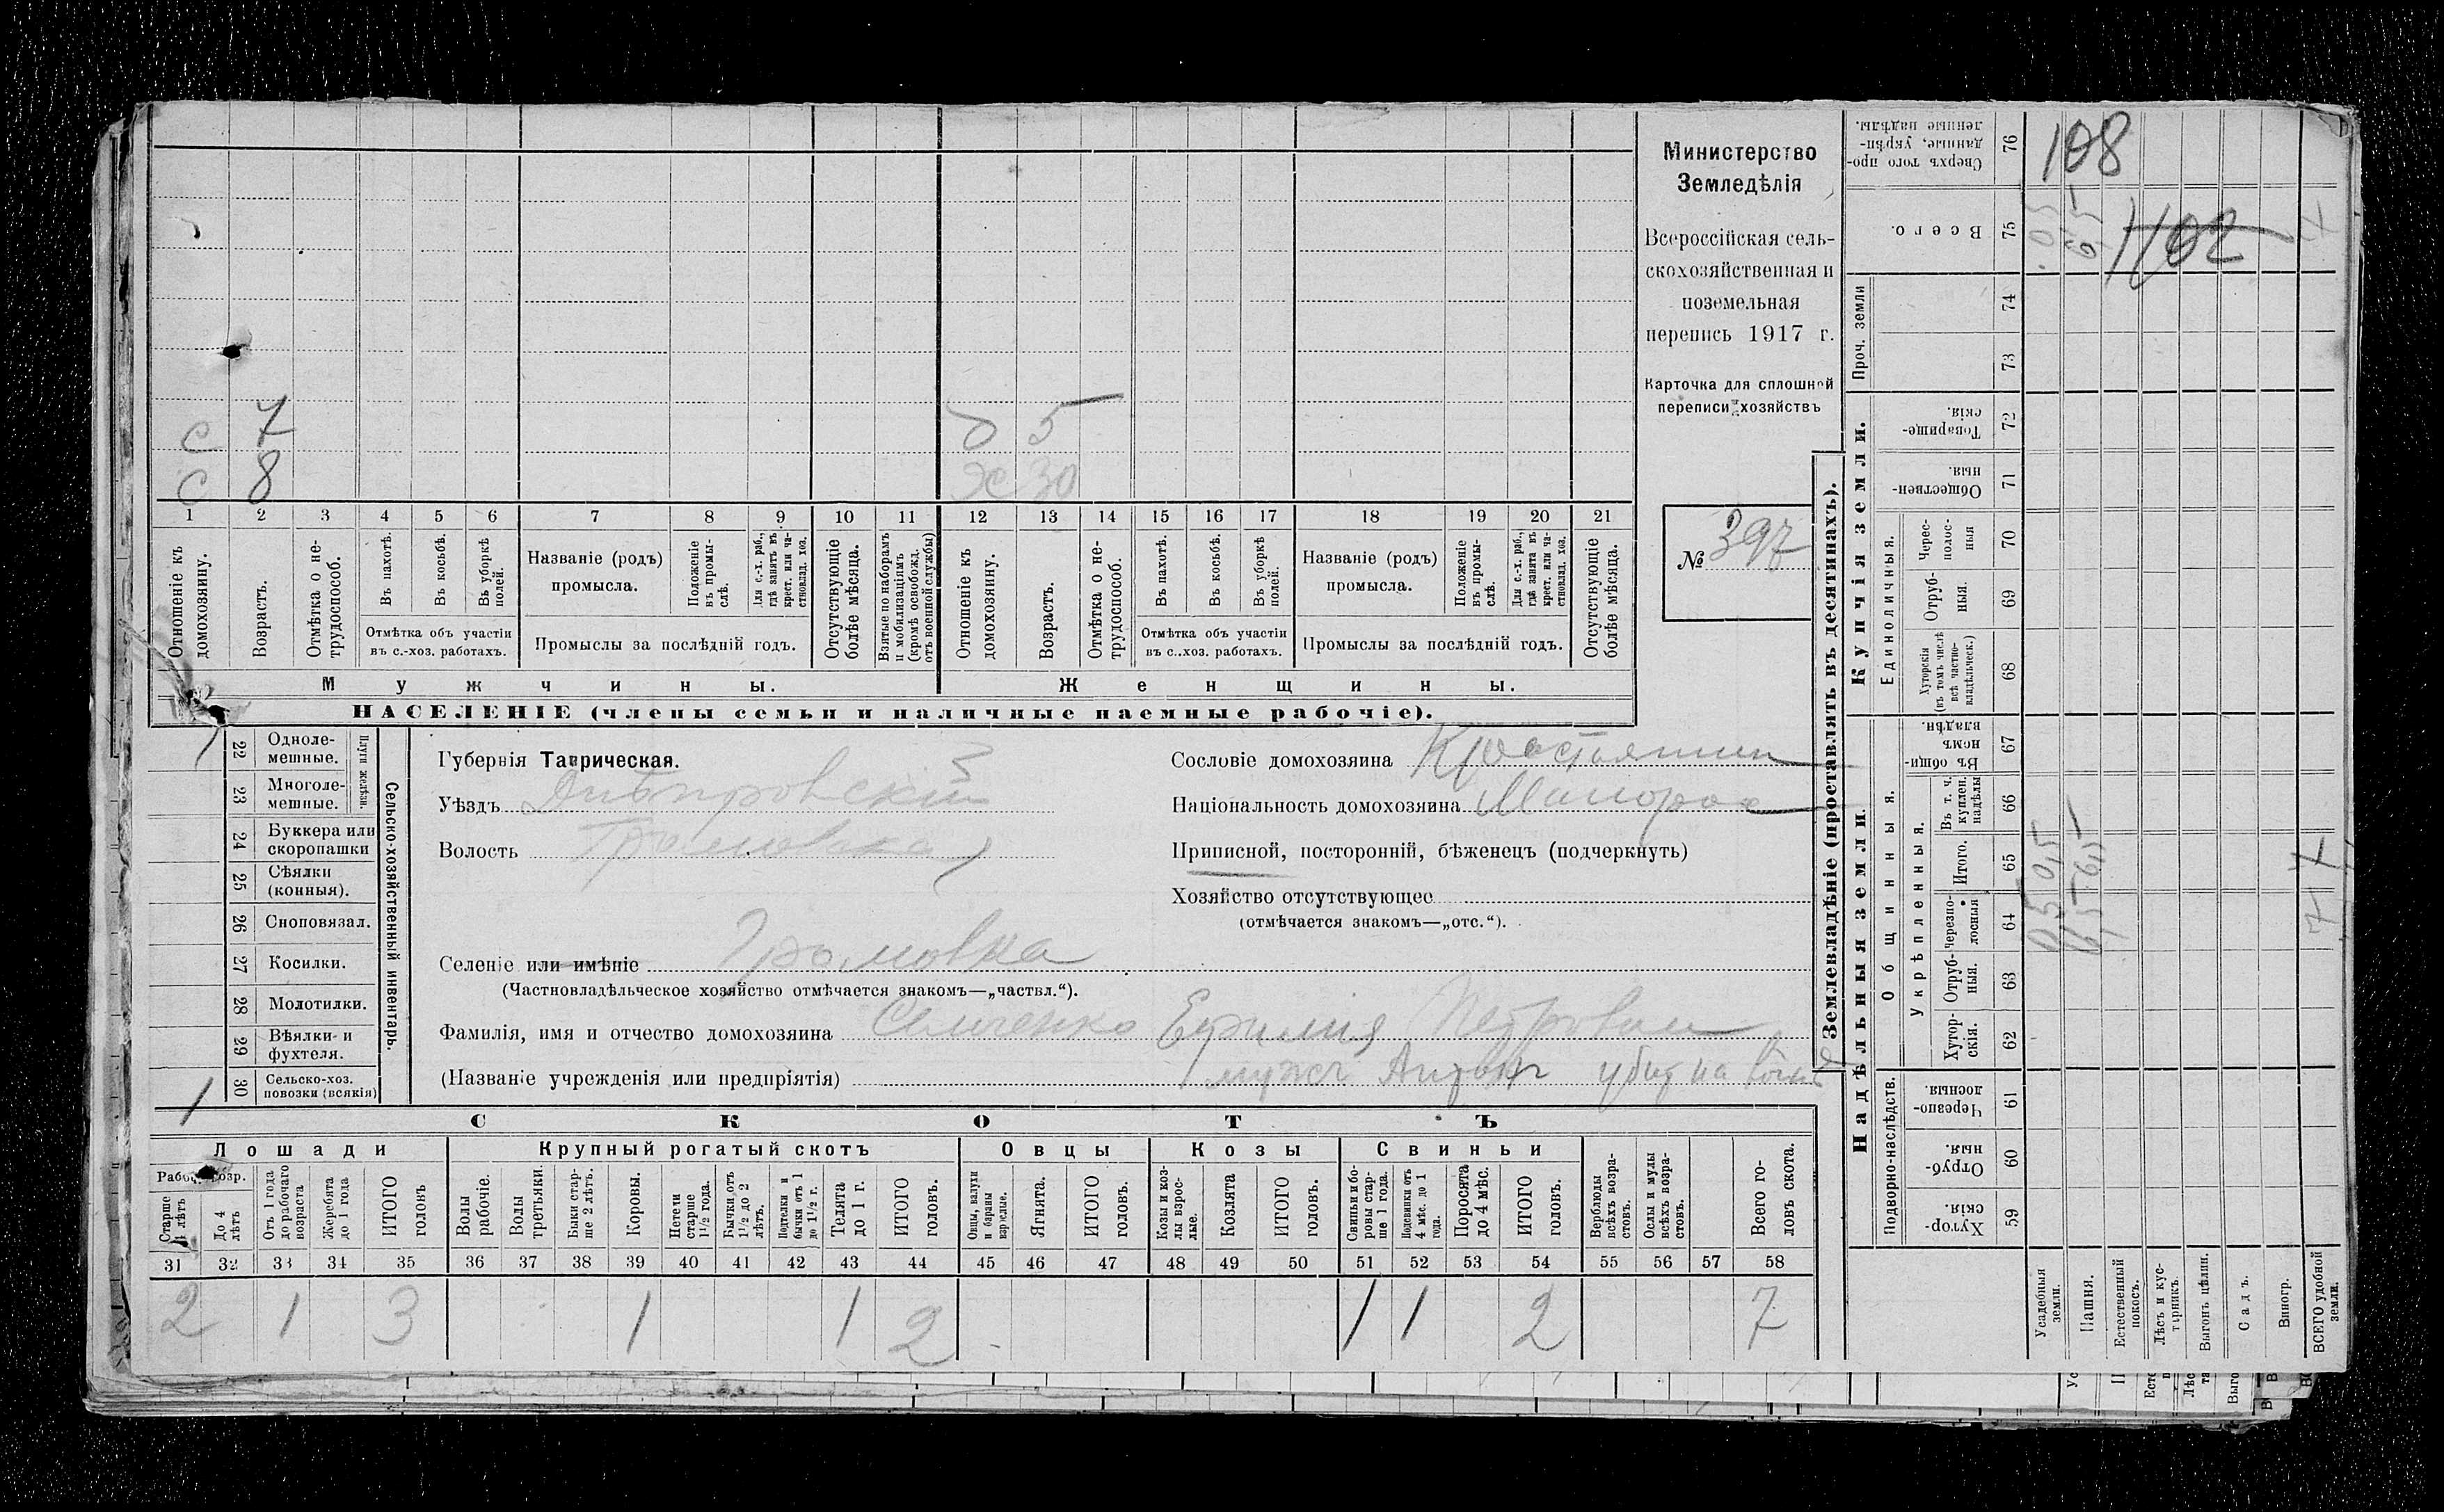 Министерство
Земледѣлія
Всероссійская сель-
скохозяйственная и
поземельная
перепись 1917 г.
Карточка для сплошной
переписи хозяйствъ
№ 397
с 7
с 8
д 5
ж 30
1 2 3 4 5 6 7 8 9 10 11 12 13 14 15 16 17 18 19 20 21
Отношеніе къ домохозяину.
Возрастъ.
Отмѣтка о не-трудоспособ.
Въ пахотѣ.
Въ косьбѣ.
Въ уборкѣ полей.
Отмѣтка объ участіи
въ с.-хоз. работахъ.
Названіе (родъ)
промысла.
Положеніе въ промы-слѣ.
Для с.-х. раб., гдѣ занятъ въ крест. или ча-стновлад. хоз.
Промыслы за послѣдній годъ.
Отсутствующіе болѣе мѣсяца.
Взятые по наборамъ и мобилизаціямъ (кромѣ освобожд. отъ военной службы)
Отношеніе къ домохозяину.
Возрастъ.
Отмѣтка о не-трудоспособ.
Въ пахотѣ.
Въ косьбѣ.
Въ уборкѣ полей.
Отмѣтка объ участіи
въ с..хоз. работахъ.
Названіе (родъ)
промысла.
Положеніе въ промы-слѣ.
Для с.-х. раб., гдѣ занята въ крест. или ча-стновлад. хоз.
Промыслы за послѣдній годъ.
Отсутствующіе болѣе мѣсяца.
Мужчины.
Женщины.
НАСЕЛЕНІЕ (члены семьи и наличные наемные рабочіе).
1 22 Одноле-мешные.
23 Многоле-мешные.
Плуги желѣзн.
24 Буккера или скоропашки
25 Сѣялки (конныя).
26 Сноповязал.
27 Косилки.
28 Молотилки.
29 Вѣялки и фухтеля.
1 30 Сельско-хоз. повозки (всякія)
Сельско-хозяйственный инвентарь.
Губернія Таврическая.
Уѣздъ Днѣпровскій
Волость Громовка
Селеніе или имѣніе Громовка
(Частновладѣльческое хозяйство отмѣчается знакомъ—„частвл.“).
Фамилія, имя и отчество домохозяина Семченко
(Названіе учрежденія или предпріятія) мужъ убит на
Сословіе домохозяина Крестьянин
Національность домохозяина Малорос
Приписной, посторонній, бѣженецъ (подчеркнуть)
Хозяйство отсутствующее
(отмѣчается знакомъ—„отс.“).
СКОТЪ
Лошади
Крупный рогатый скотъ
Овцы
Козы
Свиньи
Старше 4 лѣтъ
До 4 лѣтъ
Отъ 1 года до рабочаго возраста
Жеребята до 1 года
ИТОГО головъ
Волы рабочіе.
Волы третьяки.
Быки стар-ше 2 лѣтъ.
Коровы.
Нетели старше 1½ года.
Бычки отъ 1½ до 2 лѣтъ.
Подтелки и бычки отъ 1 до 1½ г.
Телята до 1 г.
ИТОГО головъ.
Овцы, валухи и бараны взрослые.
Ягнята.
ИТОГО головъ.
Козы и коз-лы взрос-лые.
Козлята
ИТОГО головъ.
Свиньи и бо-ровы стар-ше 1 года.
Подсвинки отъ 4 мѣс. до 1 года.
Поросята до 4 мѣс.
ИТОГО головъ.
Верблюды всѣхъ возра-стовъ.
Ослы и мулы всѣхъ возра-стовъ.
Всего го-ловъ скота.
31 32 33 34 35 36 37 38 39 40 41 42 43 44 45 46 47 48 49 50 51 52 53 54 55 56 57 58
2 1 3 1 1 2 1 1 2 7
Землевладѣніе (проставлять въ десятинахъ).
Надѣльныя земли.
Купчія земли.
Проч. земли
Подворно-наслѣдств.
Общинныя.
Укрѣпленныя.
Единоличныя.
Хутор-скія. 59
Отруб-ныя. 60
Черезпо-лосныя. 61
Хутор-скія. 62
Отруб-ныя. 63
черезпо-лосныя 64
Итого. 65
Въ т. ч. куплен. надѣлы 66
Въ общи-номъ владѣн. 67
Хуторскія (въ томъ числѣ всѣ частно-владѣльческ.) 68
Отруб-ныя. 69
Черес-полос-ныя 70
Обществен-ныя. 71
Товарище-скія. 72
73
74
Всего. 75
Сверхъ того про-данные, укрѣп-ленные надѣлы. 76
Усадебныя земли. 0,5 0,5 0,5
Пашня. 6,5 6,5 6,5
Естественный покосъ.
Лѣсъ и кус-тарникъ.
Выгонъ цѣлин.
Садъ.
Виногр.
ВСЕГО удобной земли. 7 7 7
108
1102